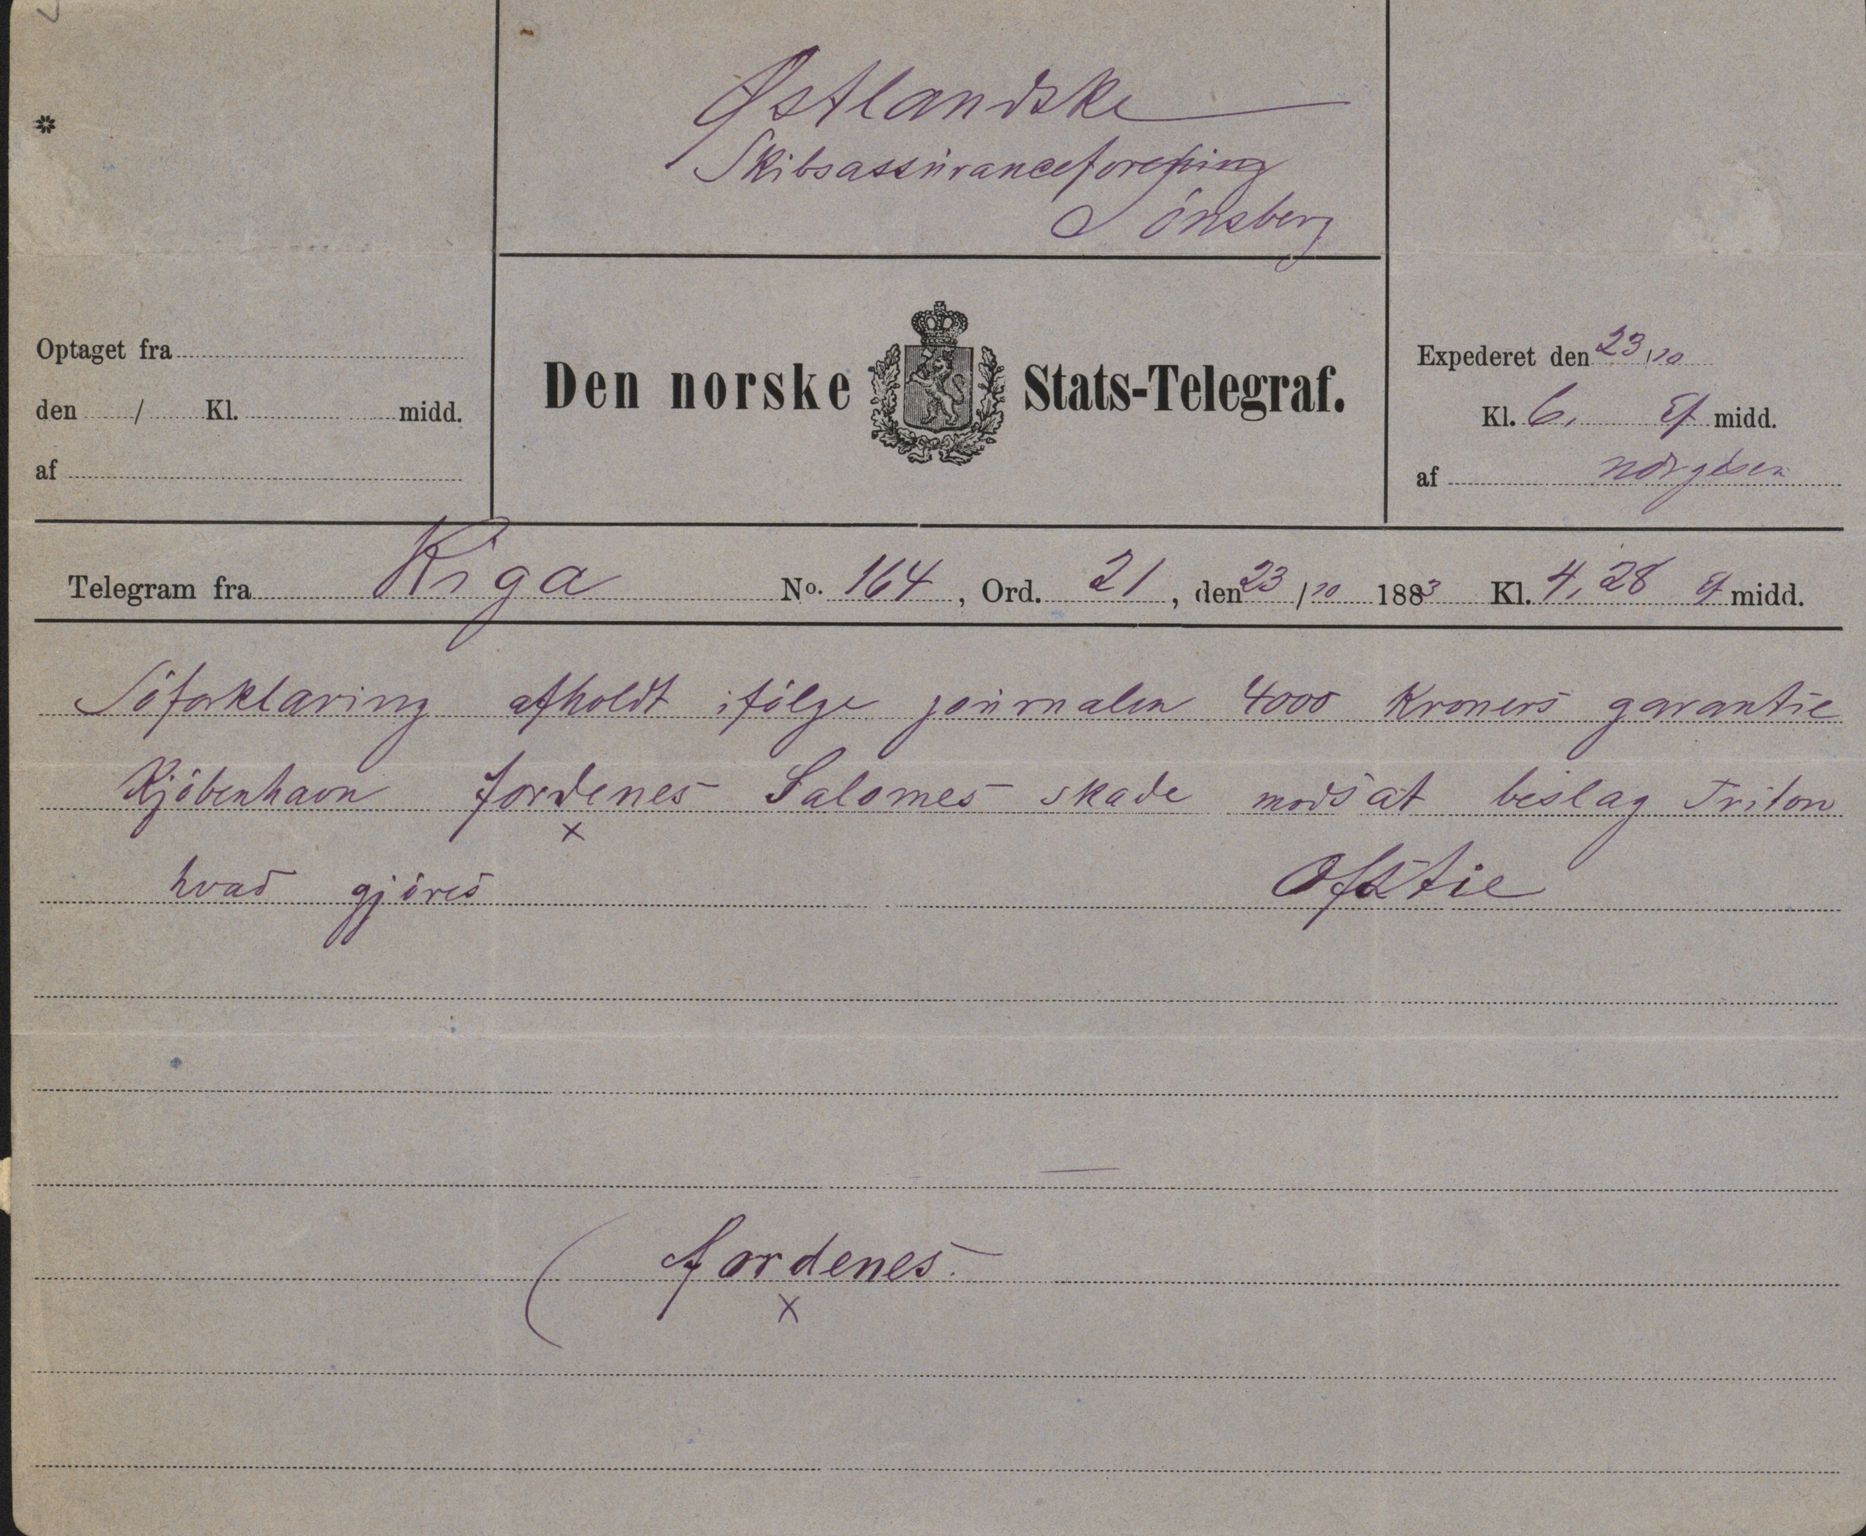 Østlandske
Skibsassuranceforening
Tönsberg
*
Optaget fra
den / Kl. midd.
af
Den norske Stats-Telegraf.
Expederet den 23/10
Kl. 6, Ef midd.
af
Telegram fra Riga No. 164, Ord. 21, den 23/10 1883 Kl. 4,28 Ef midd.
Söforklaring afholdt ifölge journalen 4000 Kroners garantie
Kjöbenhavn fordenes Salomes skade modsat beslag Triton
x
hvad gjöres Ofstie
( fordenes.
x